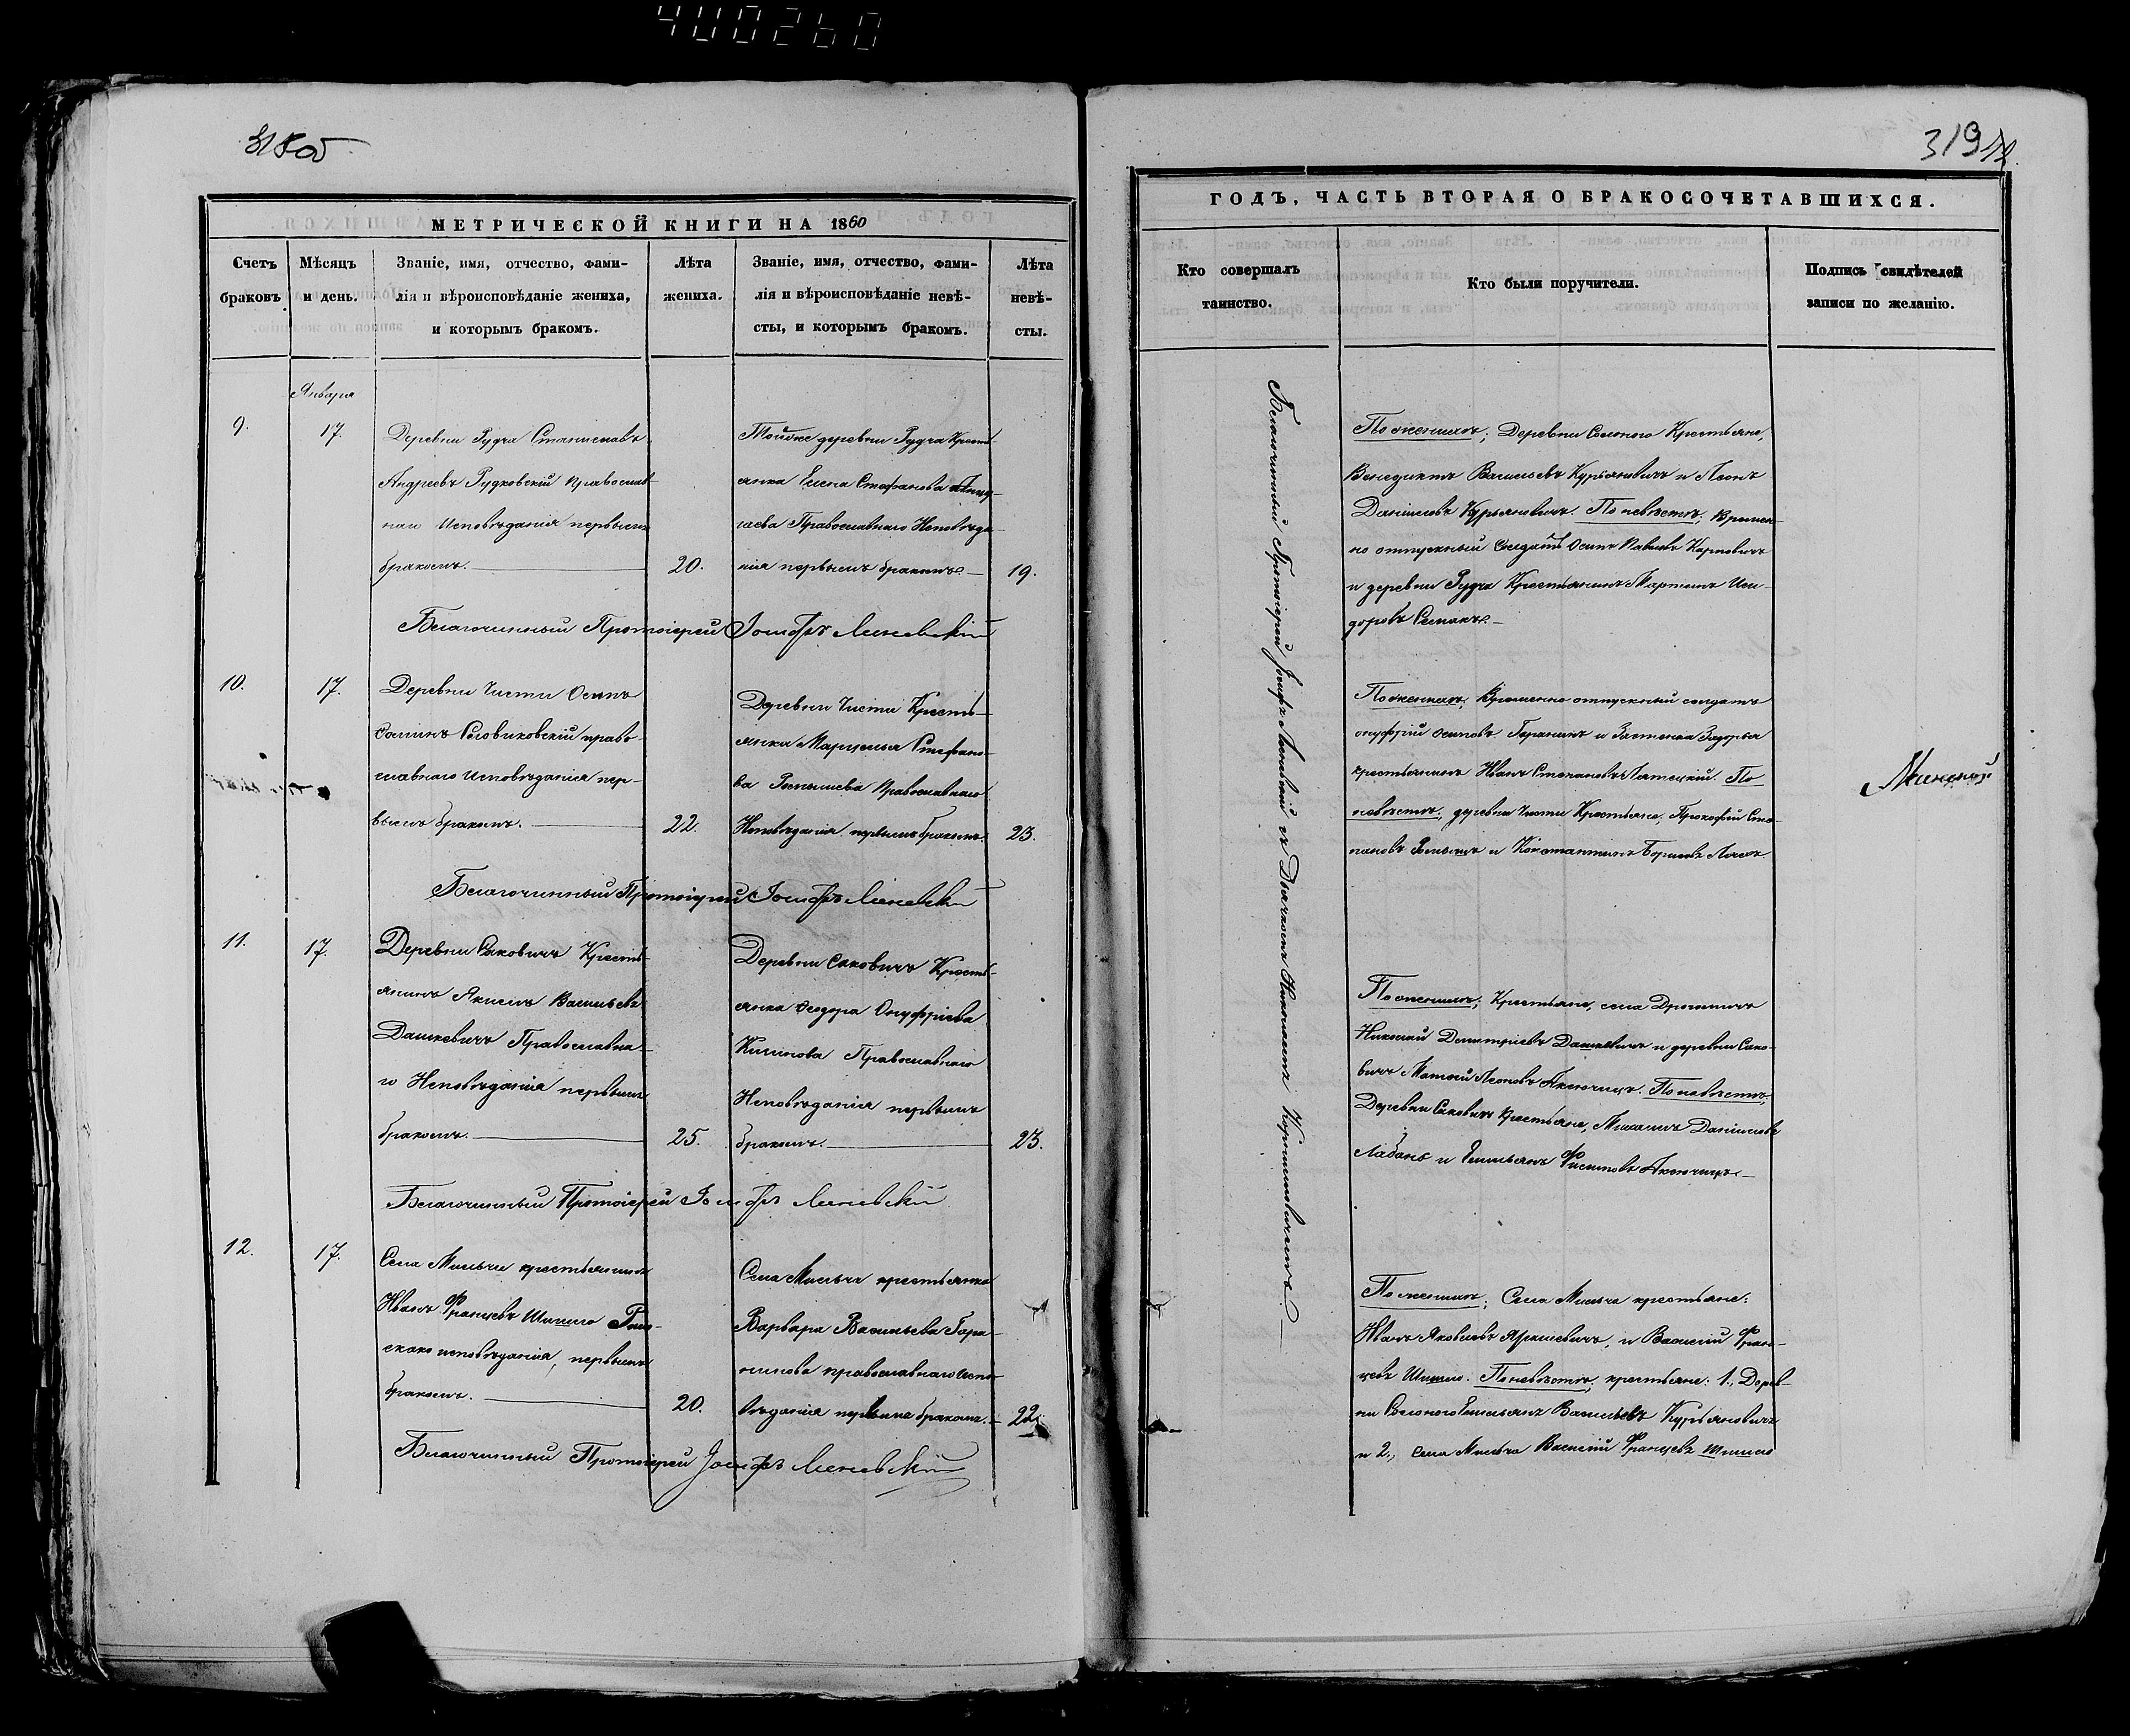 400260
318 об
319
МЕТРИЧЕСКОЙ КНИГИ НА 1860
Счетъ браковъ
Мѣсяцъ и день.
Званіе, имя, отчество, фами-
лія и вѣроисповѣданіе жениха,
и которымъ бракомъ.
Лѣта
жениха.
Званіе, имя, отчество, фами-
лія и вѣроисповѣданіе невѣ-
сты, и которымъ бракомъ.
Лѣта
невѣ-
сты.
Января
9.
17.
Деревни Рудча Станиславъ
Андреевъ Рудковскій православ-
наго Исповѣданія первымъ
бракомъ.
20.
Тойже деревни Рудча Кресть-
янка Елена Стефанова
Православнаго Исповѣда-
нія первымъ бракомъ.
19.
Благочинный Протоіерей Іосифъ Линевскій
10.
17.
Деревни Чисти Осипъ
Словиковскій право-
славнаго Исповѣданія пер-
вымъ бракомъ.
22.
Деревни Чисти Кресть-
янка Марцелья Стефано-
ва Православнаго
Исповѣданія первымъ бракомъ.
23.
Благочинный Протоіерей Іосифъ Линевскій
11.
17.
Деревни Саковичъ Кресть-
янинъ Якимъ Васильевъ
Дашкевичъ Православна-
го Исповѣданія первымъ
бракомъ.
25.
Деревни Саковичъ Кресть-
янка Ѳеодора Онуфріева
Православнаго
Исповѣданія первымъ
бракомъ.
23.
Благочинный Протоіерей Іосифъ Линевскій
12.
17.
Села Мильча крестьянинъ
Иванъ Францевъ Шишло Рим-
скаго исповѣданія, первымъ
бракомъ.
20.
Села Мильча крестьянка
Варвара Васильева Гара-
нинова православнаго испо-
вѣданія первымъ бракомъ.
22.
Благочинный Протоіерей Іосифъ Линевскій
ГОДЪ, ЧАСТЬ ВТОРАЯ О БРАКОСОЧЕТАВШИХСЯ.
Кто совершалъ
таинство.
Кто были поручители.
Подпись свидѣтелей
записи по желанію.
Благочинный Протоіерей Іосифъ Линевскій съ Дьячкомъ Николаемъ
По женихѣ; Деревни Солоного Крестьяне,
Венедиктъ Васильевъ Курьяновичъ и Леонъ
Даниловъ Курьяновичъ. По невѣстѣ; времен-
но отпускный Солдатъ Осипъ Павловъ Карповичъ
и деревни Рудча Крестьянинъ Мартинъ Иси-
доровъ Семакъ.
По женихѣ; Временно отпускный солдатъ
Онуфрій Осиповъ Гаранинъ и Застенка Задорья
крестьянинъ Иванъ Степановъ По
невѣстѣ; деревни Чисти Крестьяне, Прокофій Сте-
пановъ и Константинъ Борисовъ
По женихѣ; Крестьяне, села
Николай Димитріевъ Дашкевичъ и деревни Сако-
вичъ Матвей Леоновъ По невѣстѣ;
Деревни Саковичъ Крестьяне, Даниловъ
Лабань и Емильянъ
По женихѣ; Села Мильча крестьяне:
Иванъ Яковлевъ и Василій Фран-
цевъ Шишло. По невѣстѣ; крестьяне: 1., Дерев-
ни Солоного Емильянъ Васильевъ Курьяновичъ
и 2., села Мильча Василій Францевъ Шишло